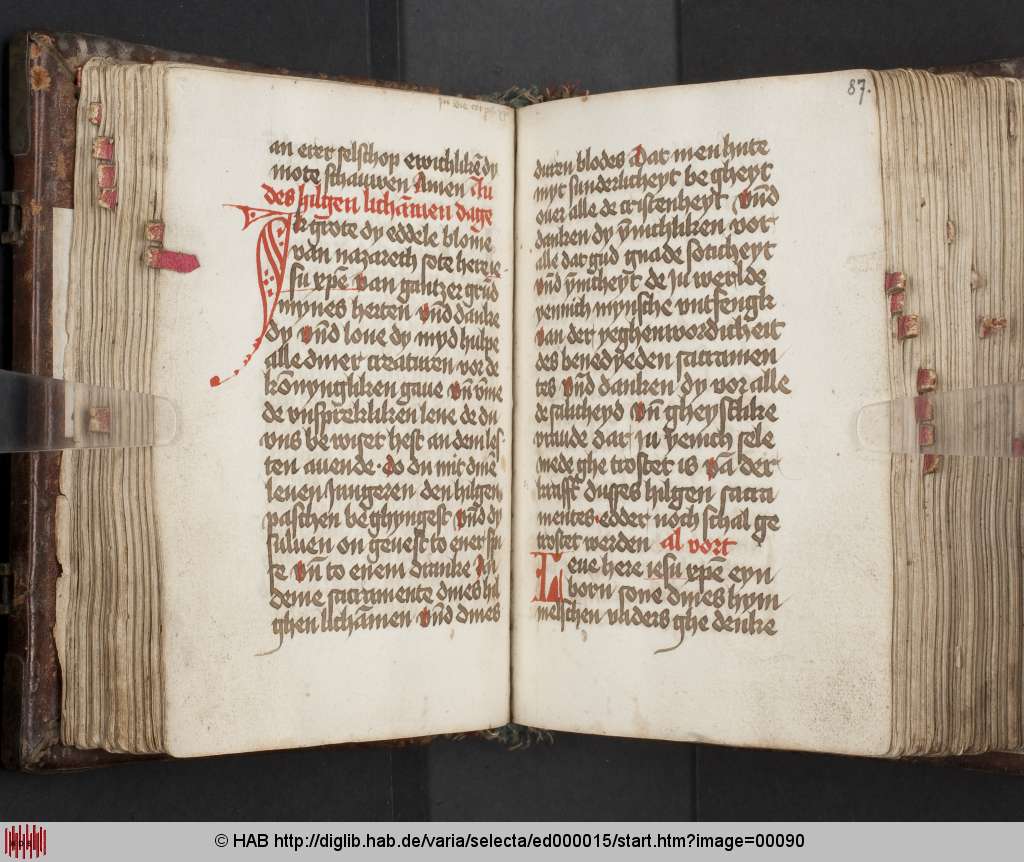 an erer selschop ewichlikē dy
mote schauwen Amen In
des hilgen lichāmen dage
Ik grote dy eddele blome
van nazareth sote here ie
su xpē van gantzer grūd
mynes herten vnd danke
dy vnd loue dy myd hulpe
alle diner creaturen vor de
konyngkliken gaue vn̄ vme
de vnsprekliken leue de du
vns be wiset hest an dem les
ten auende. do du mit dine
leuen Jungeren den hilgen
paschen be ghyngest vnd dy
suluen on geuest to ener spi
se vn̄ to enem dranke In
deme sacramente dines hil
ghen lichāmen vnd dines
87.
duren blodes dat men hute
myt sunderlicheyt be gheyt
ouer alle de cristenheyt vnd
danken dy ynnichliken vor
alle dat gud gnade soticheyt
vnd ynnicheyt de ju werlde
yennich mynsche vntfengk
van der yeghenwordicheit
des benedyeden sacramen
tes vnd danken dy vor alle
de salicheyd vn̄ gheystlike
vraude dar ju yenich sele
mede ghe trostet is vā der
krafft dusses hilgen sacra
mentes edder noch schal ge
trostet werden al vort
Leue here iesu xpē eyn
born sone dines hym
melschen vaders ghe denke
© HAB http://diglib.hab.de/varia/selecta/ed000015/start.htm?image=00090